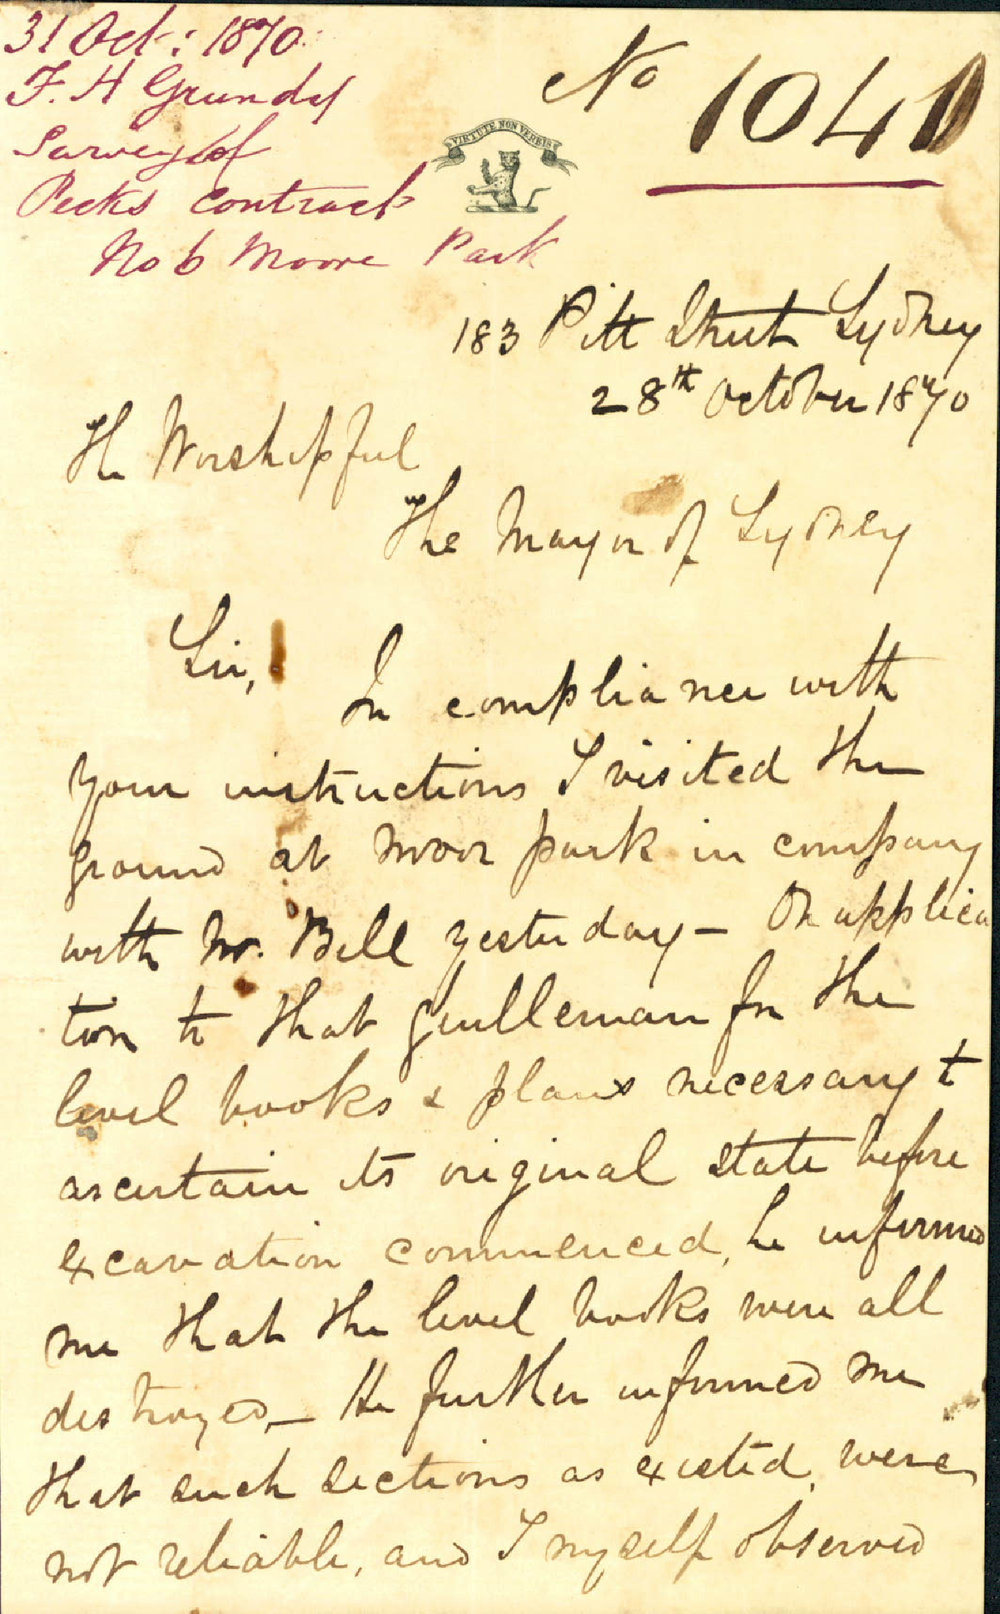 31 Oct: 1870
F. H Grundy
Survey of
Pecks contract
No 6 Moore Park
No 1041
VIRTUTE NON VERBIS
183 Pitt Street Sydney
28th October 1870
The Worshipful
The Mayor of Sydney
Sir,
In compliance with
your instructions I visited the
ground at Moor park in company
with Mr. Bell yesterday – On applica
tion to that gentleman for the
level books & plans necessary to
ascertain its original state before
excavation commenced, he informed
me that the level books were all
destroyed – He further informed me
that such sections as existed, were
not reliable, and I myself observed